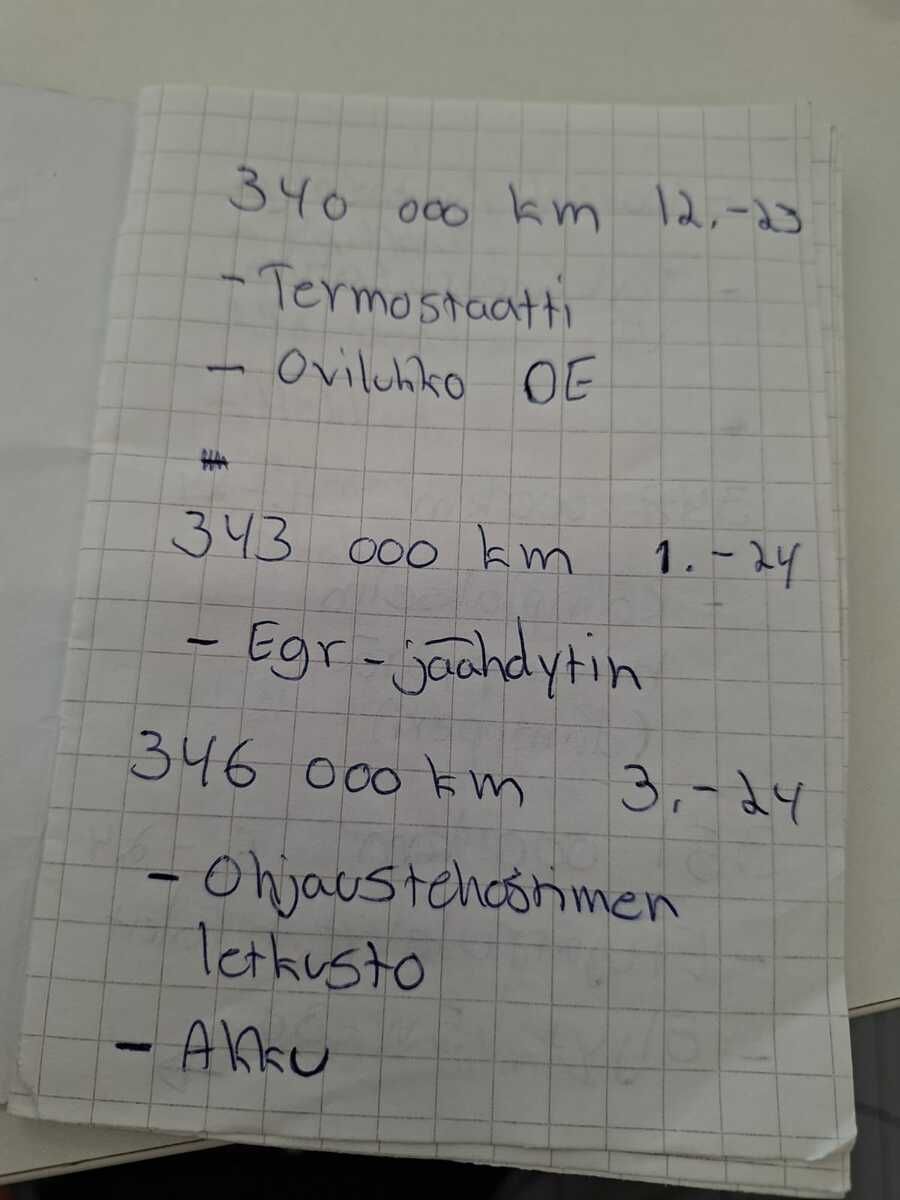 340 000 km 12.-23
- Termostaatti
- Oviluhko OE
343 000 km 1.-24
- Egr-jäähdytin
346 000 km 3.-24
- Ohjaustehostimen
letkusto
- Akku